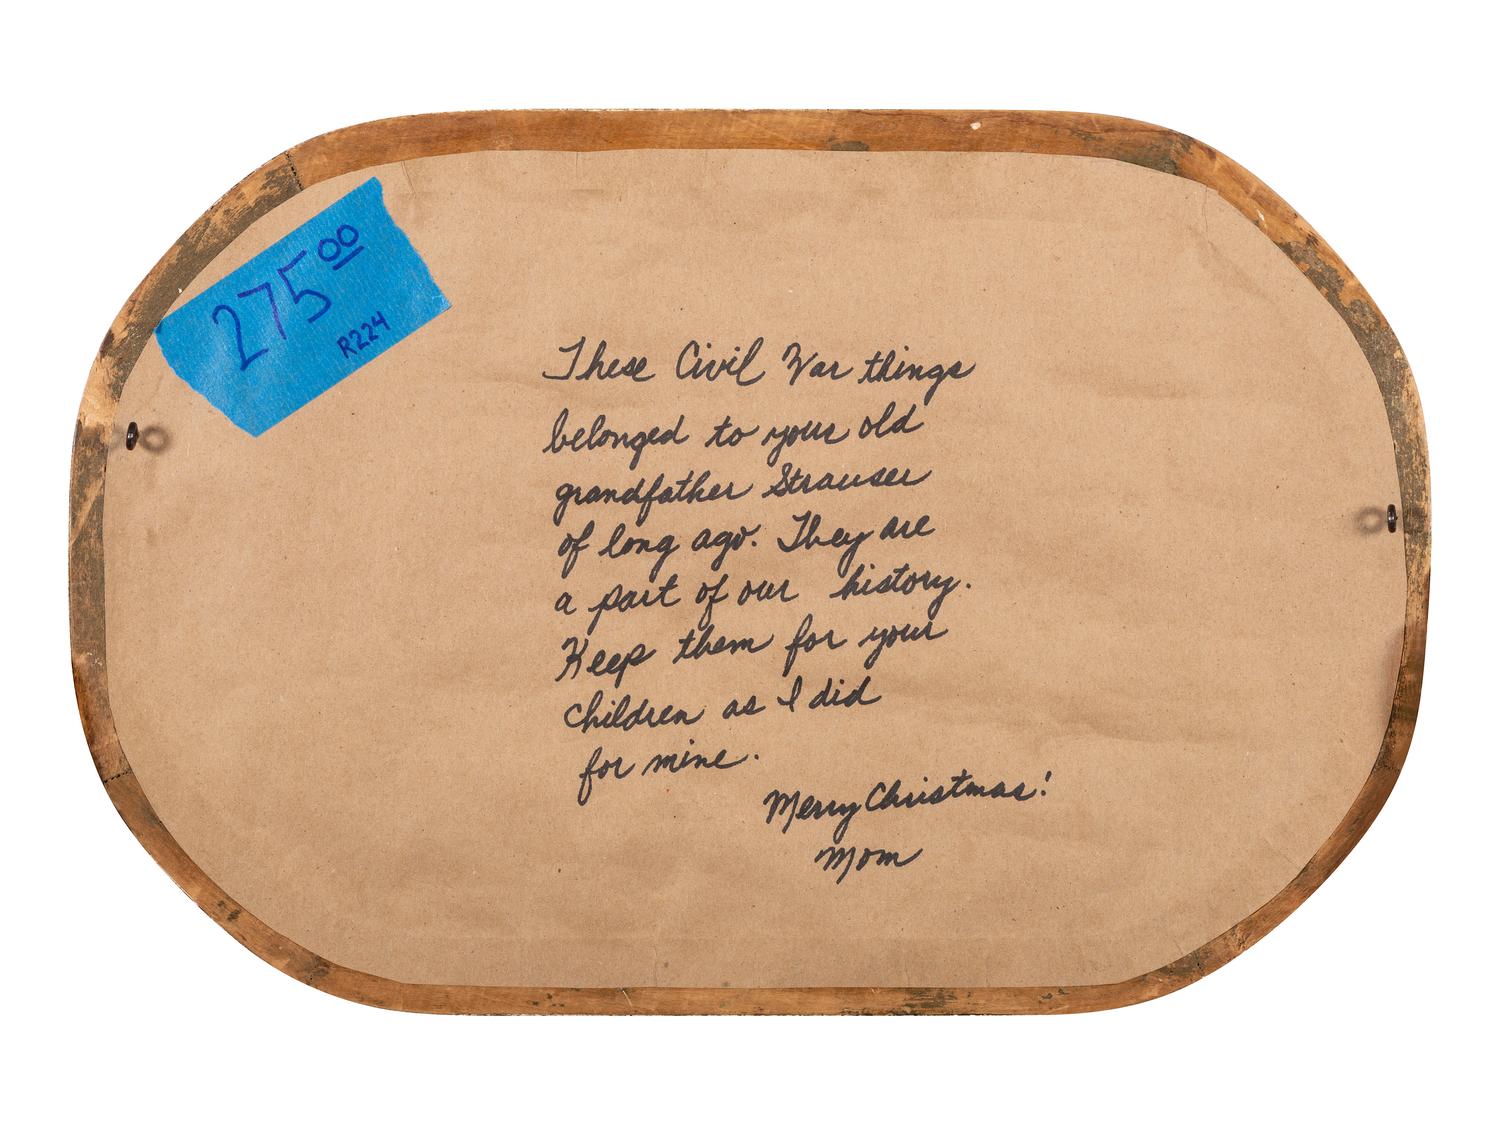 275.00
R224
These Civil War things
belonged to your old
grandfather Strauser
of long ago. They are
a part of our history.
Keep them for your
children as I did
for mine.
Merry Christmas!
Mom